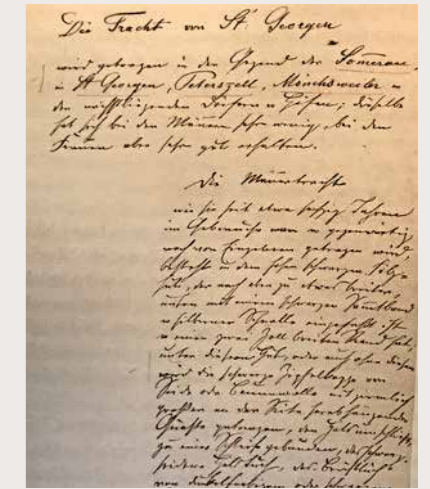 Die Tracht von St. Georgen
wird getragen in der Gegend der Sommerau,
in St Georgen, Peterszell, Mönchsweiler u
den nächstliegenden Dörfern u Höfen; dieselbe
hat sich bei den Männern sehr wenig, bei den
Frauen aber sehr gut erhalten.
Die Männertracht
wie sie seit etwa sechzig Jahren
im Gebrauche war u gegenwärtig
noch von Einzelnen getragen wird,
besteht in dem hohen schwarzen Filz-
hut, der nach oben zu etwas breiter,
unten mit einem schwarzen Samtband
u silberner Schnalle eingefaßt ist
u einen zwei Zoll breiten Rand hat,
unter diesem Hut, oder auch ohne diesen
wird die schwarze Zipfelkappe von
Seide oder Baumwolle mit ziemlich
großen an der Seite herabhängenden
Quaste getragen, den Hals umschließt,
zu einer Schleife gebunden, das schwarz-
seidene Halstuch, das Brusttuch
von dunkelfarbigem oder schwarzem